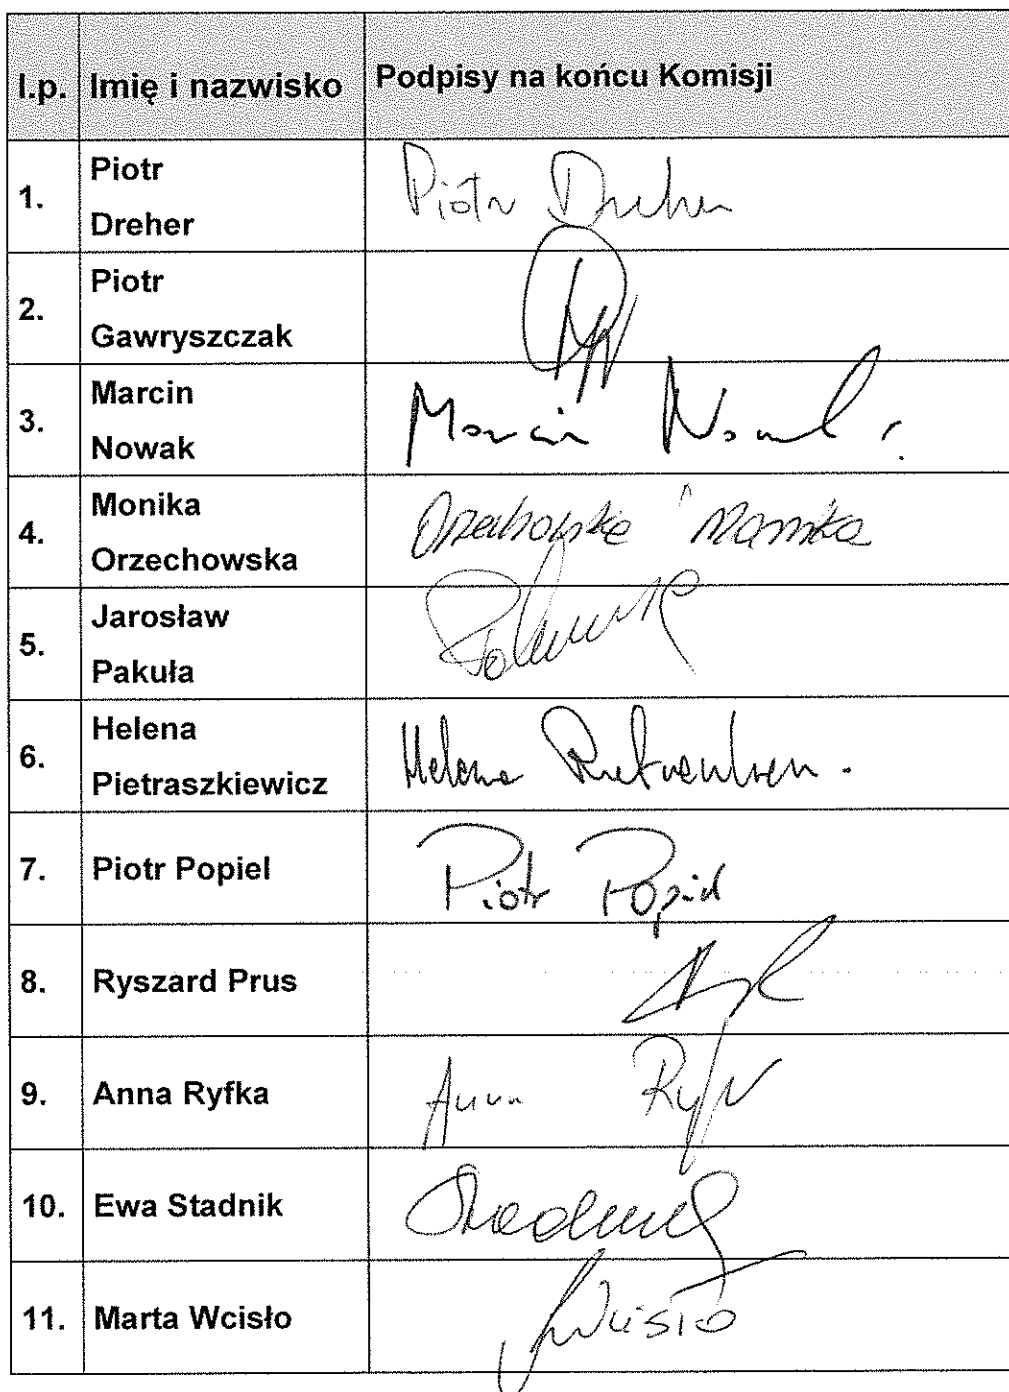 l.p. Imię i nazwisko Podpisy na końcu Komisji
1. Piotr Dreher Piotr Dreher
2. Piotr Gawryszczak
3. Marcin Nowak Marcin Nowak
4. Monika Orzechowska Orzechowska Monika
5. Jarosław Pakuła
6. Helena Pietraszkiewicz Helena
7. Piotr Popiel Piotr Popiel
8. Ryszard Prus
9. Anna Ryfka Anna
10. Ewa Stadnik Stadnik
11. Marta Wcisło Wcisło